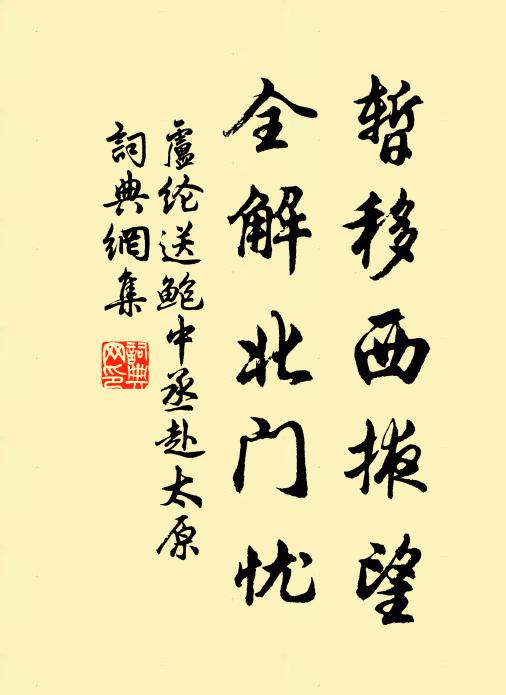 暂移西掖望
全解北门忧
盧纶送鲍中丞赴太原
詞典網集
詞典
网印